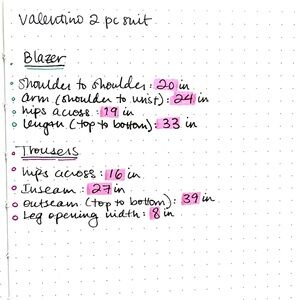 Valentino 2 pc suit
Blazer
shoulder to shoulder: 20 in
arm (shoulder to wrist): 24 in
hips across: 19 in
length (top to bottom): 33 in
Trousers
hips across: 16 in
Inseam: 27 in
outseam (top to bottom): 39 in
Leg opening width: 8 in